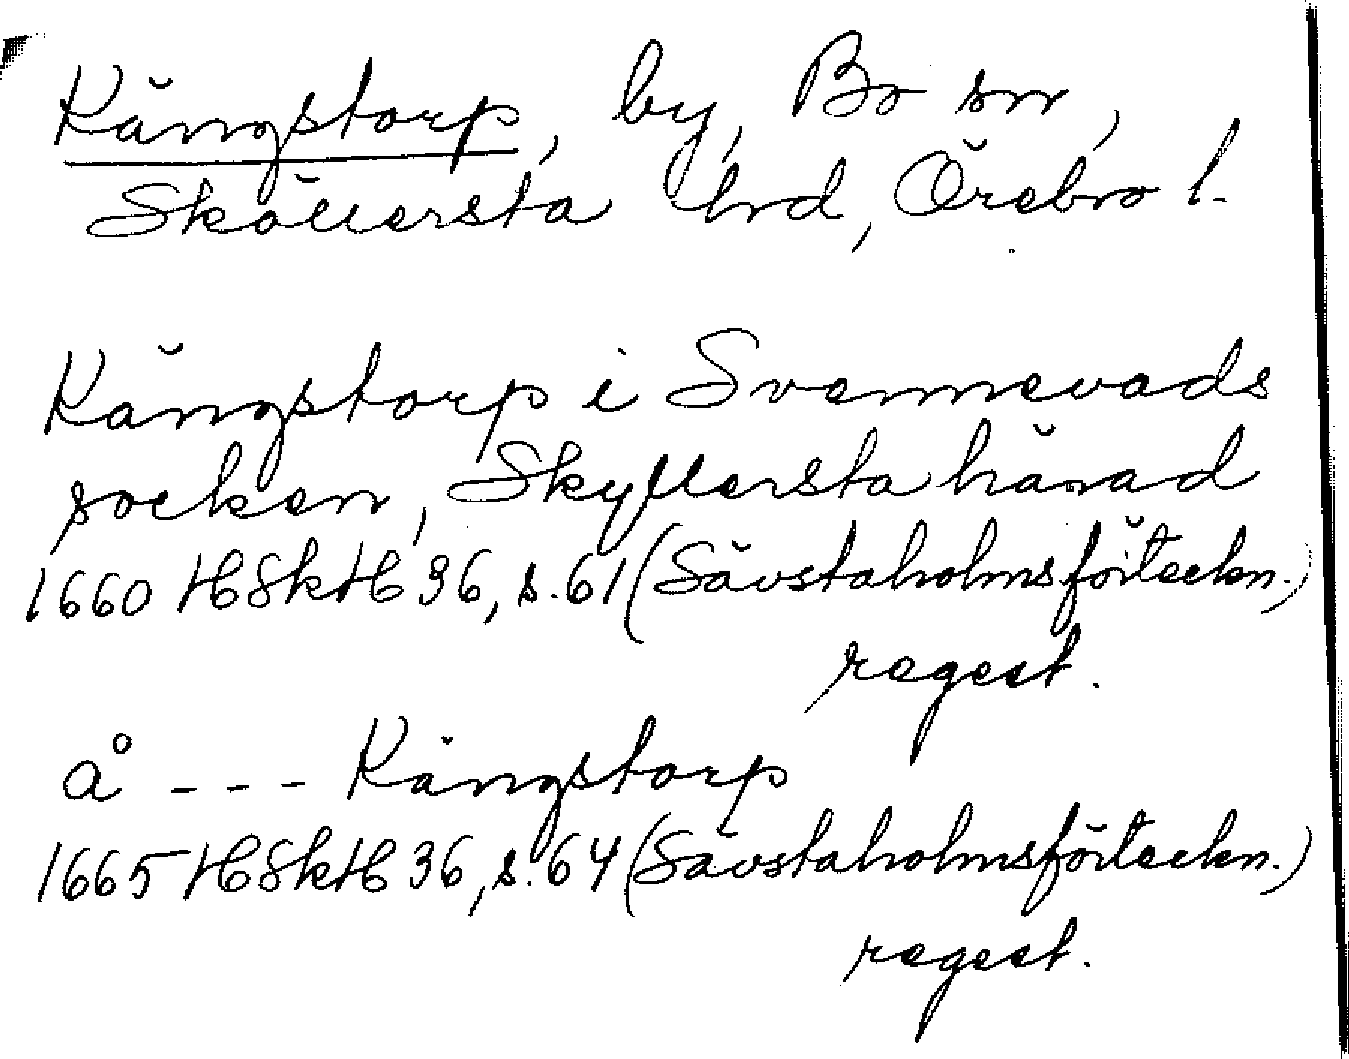 Kängstorp, by, Bo sn,
Sköllersta hrd, Örebro l.
Kängstorp i Svennevads
socken, Skyllersta härad
1660 HSkH 36, s. 61 (Sävstaholmsförteckn.)
regest.
å - - - Kängstorp
1665 HSkH 36, s. 64 (Sävstaholmsförteckn.)
regest.